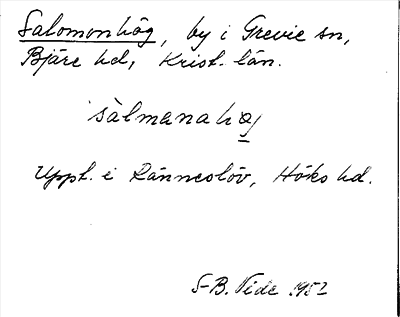 Salomonhög, by i Grevie sn,
Bjäre hd, Krist. län.
'sàlmanahøj
Uppt. i Ränneslöv, Höks hd.
S-B. Vide 1952